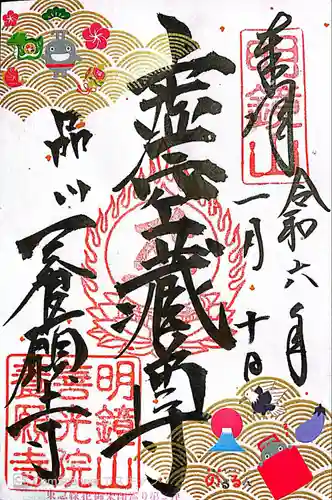 奉拝
明鏡山
令和六年
一月十日
虚空蔵尊
品川
養願寺
明鏡山
善光院
養願寺
のるるん